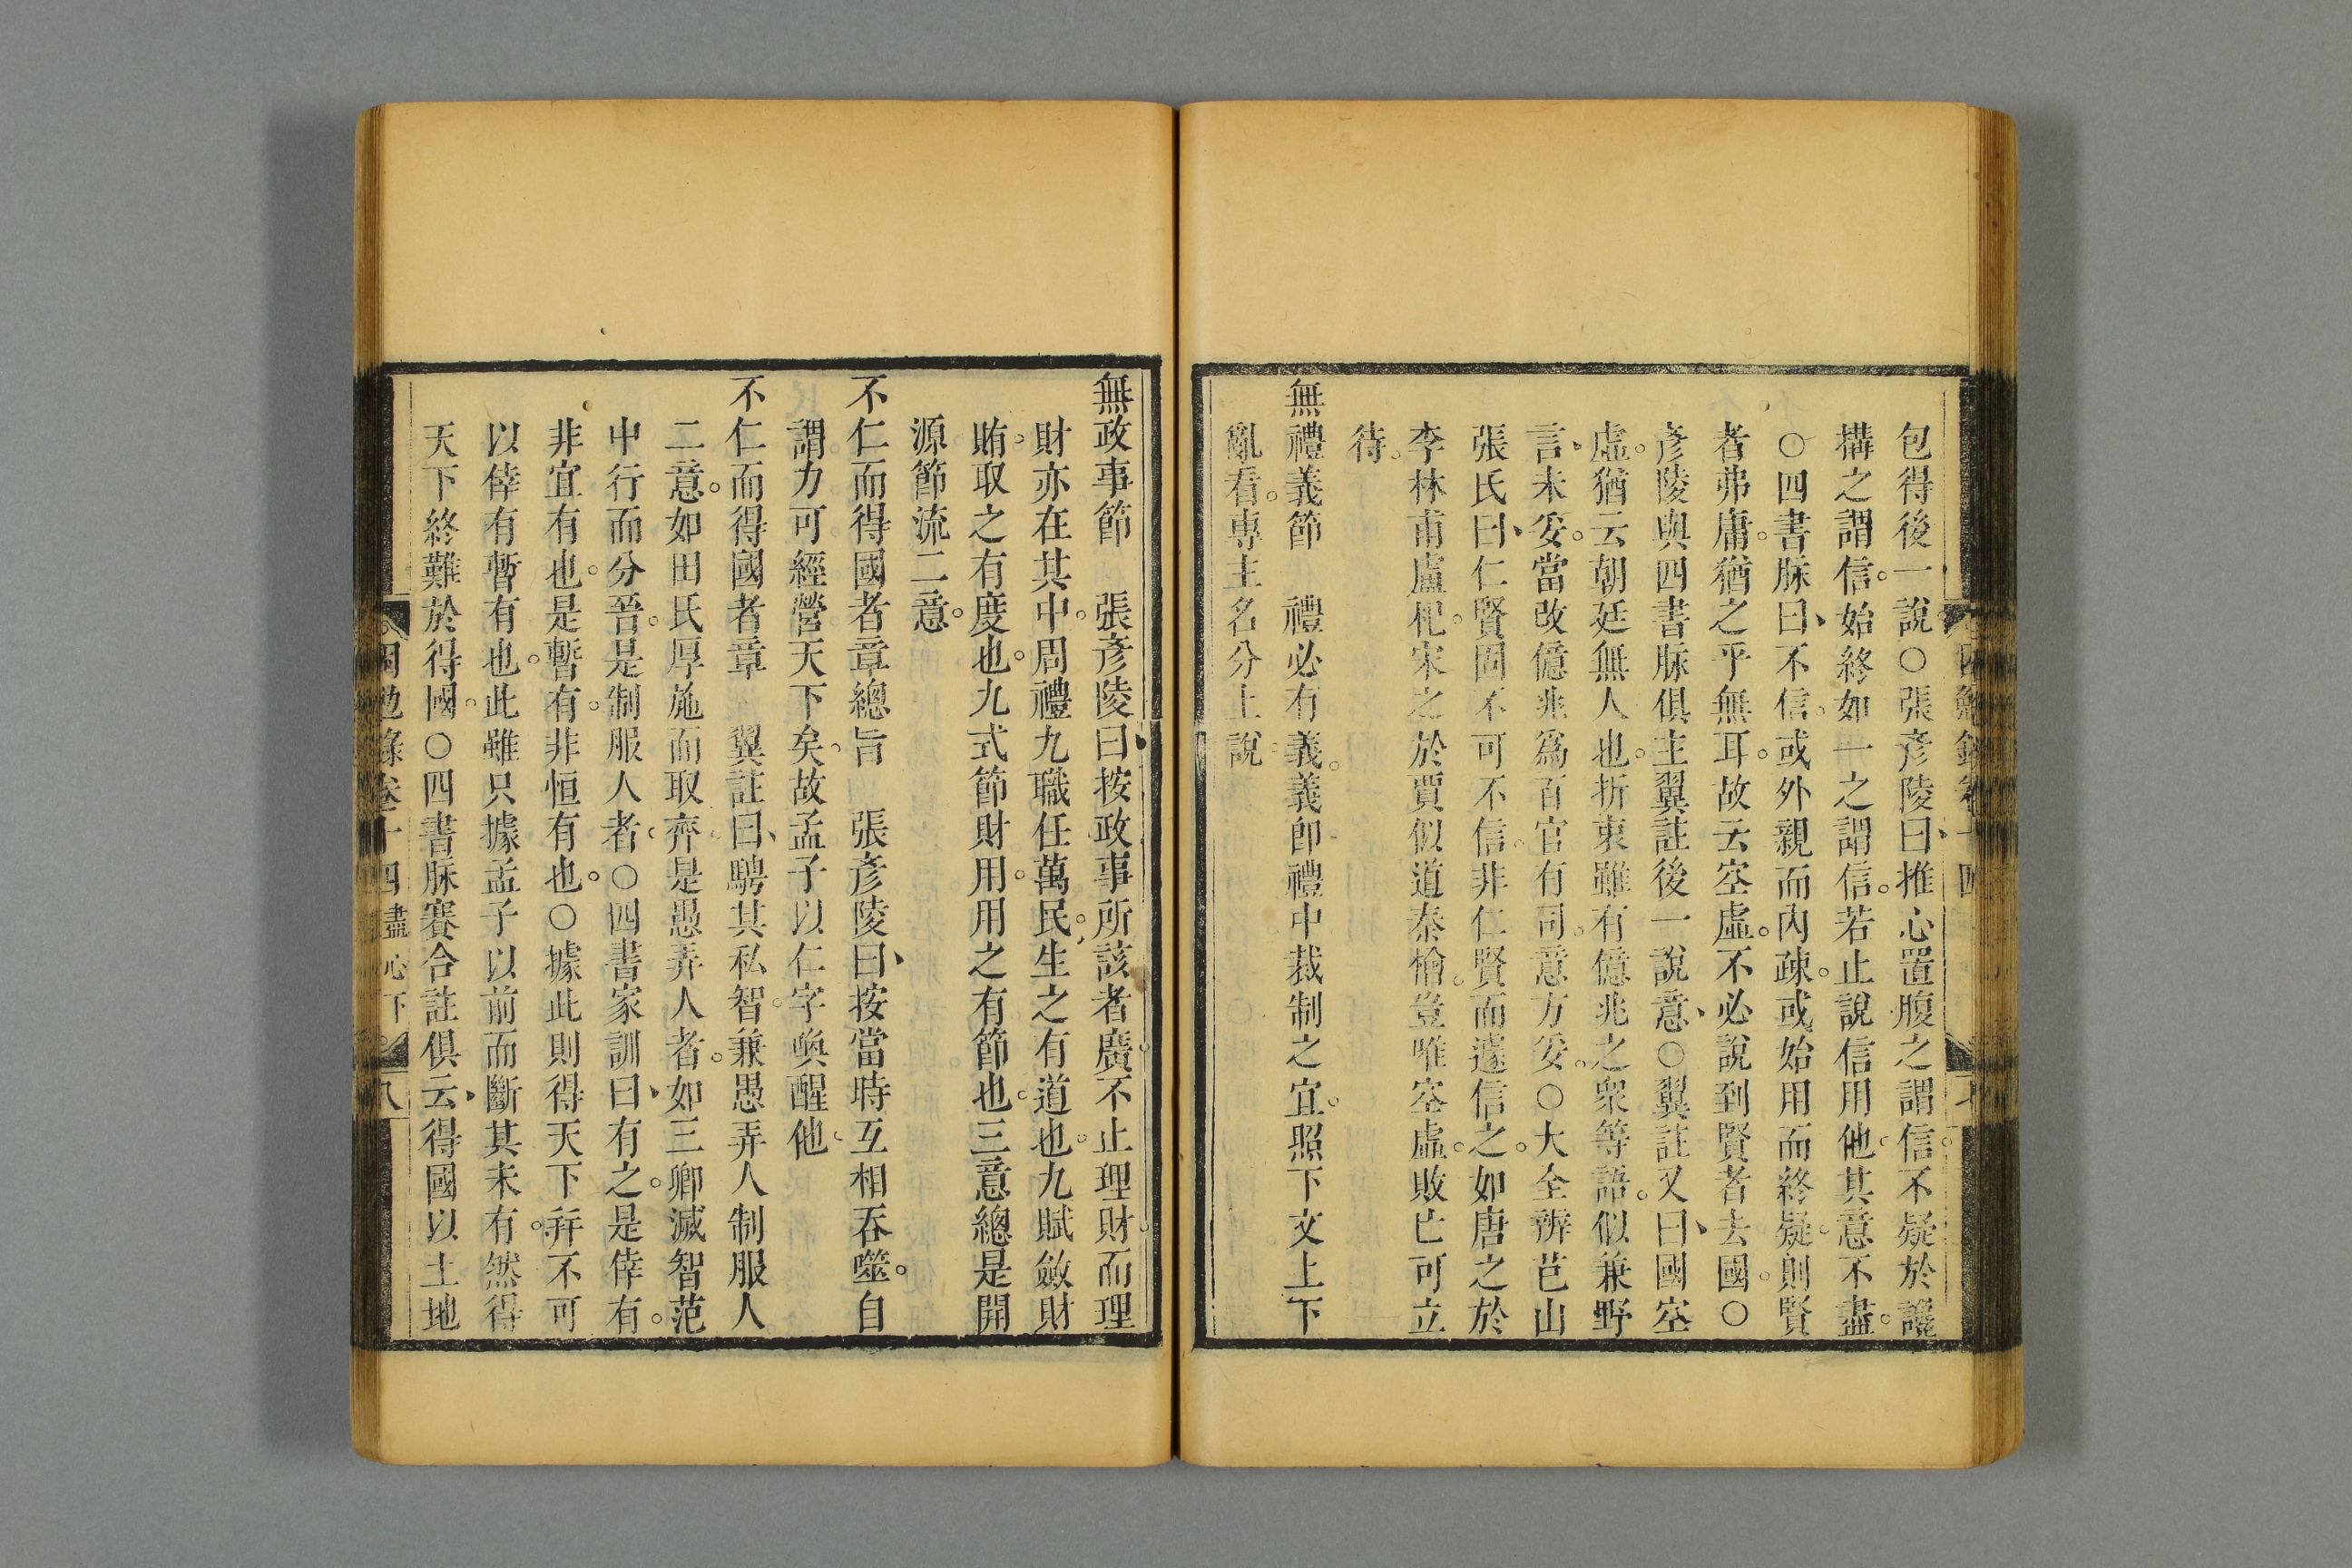 包得後一說。○張彥陵曰、推心置腹之謂信。不疑於讒
搆之謂信。始終如一之謂信。若止說信用他。其意不盡。
○四書脉曰、不信。或外親而內疎。或始用而終疑。則賢
者弗庸。猶之乎無耳。故云空虛。不必說到賢者去國。○
彥陵與四書脉俱主翼註後一說意、○翼註又曰、國空
虛。猶云朝廷無人也。折衷雖有億兆之衆等語。似兼野
言、未妥。當改億兆爲百官有司。意方妥。○大全辨芑山
張氏曰、仁賢固不可不信。非仁賢而遽信之。如唐之於
李林甫盧杞。宋之於賈似道秦檜。豈唯空虛。敗亡可立
待。
無禮義節　禮必有義。義卽禮中裁制之宜。照下文上下
亂看。專主名分上說
無政事節　張彥陵曰、按政事所該者廣。不止理財。而理
財亦在其中。周禮九職任萬民。生之有道也。九賦斂財
賄。取之有度也。九式節財用。用之有節也。三意總是開
源節流二意。
不仁而得國者章總旨　張彥陵曰、按當時互相吞噬。自
謂力可經營天下矣。故孟子以仁字喚醒他
不仁而得國者章　翼註曰、騁其私智。兼愚弄人制服人
二意。如田氏厚施而取齊。是愚弄人者。如三卿滅智范
中行而分晉。是制服人者。○四書家訓曰、有之。是倖有。
非宜有也。是暫有。非恒有也。○據此則得天下并不可
以倖有暫有也。此雖只據孟子以前而斷其未有。然得
天下終難於得國。○四書脉賽合註俱云、得國以土地
困勉錄卷十四 盡心下 八